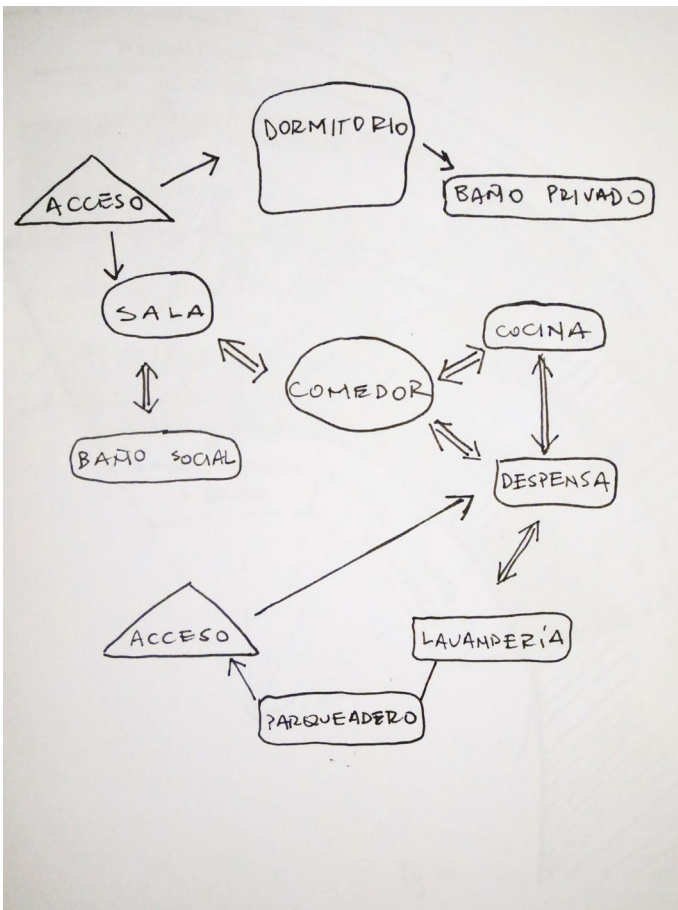 DORMITORIO
ACCESO
BAÑO PRIVADO
SALA
COCINA
COMEDOR
BAÑO SOCIAL
DESPENSA
ACCESO
LAVANDERÍA
PARQUEADERO